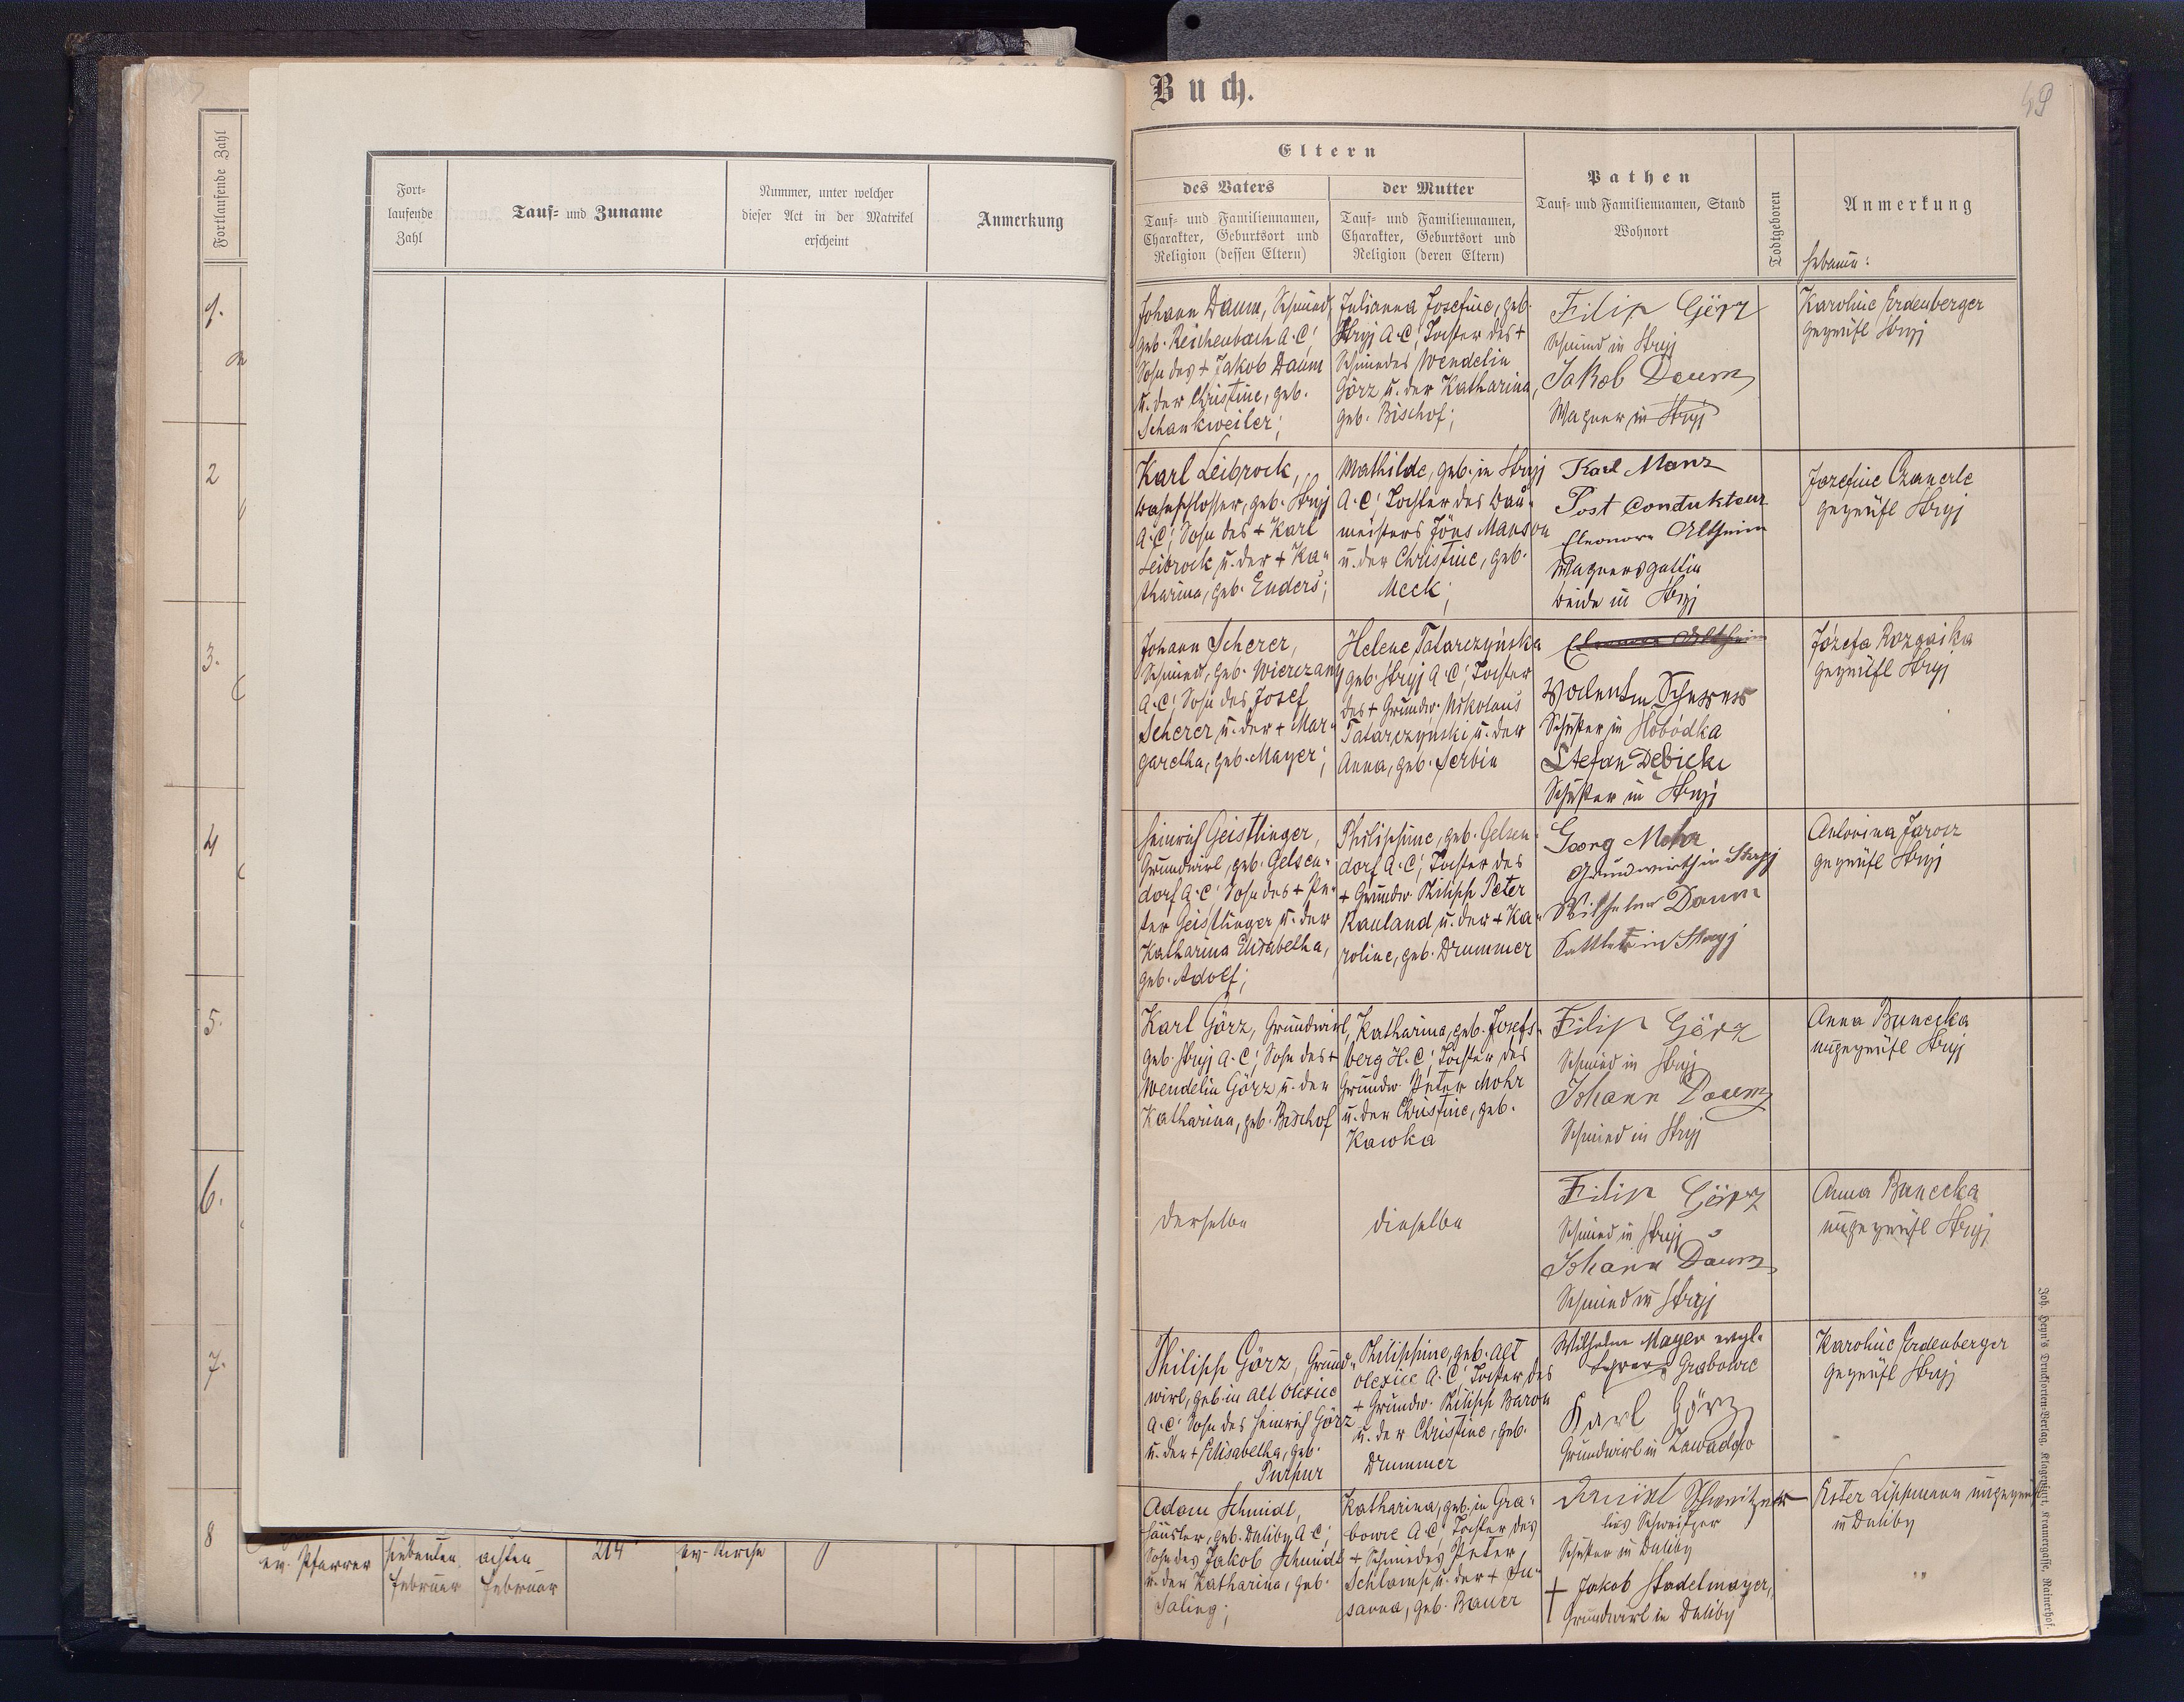 Buch.
49
Fortlaufende Zahl
Fort-
laufende
Zahl
Tauf- und Zuname
Nummer, unter welcher
dieser Act in der Matrikel
erscheint
Anmerkung
Eltern
des Vaters
der Mutter
Tauf- und Familiennamen,
Charakter, Geburtsort und
Religion (dessen Eltern)
Tauf- und Familiennamen,
Charakter, Geburtsort und
Religion (deren Eltern)
Pathen
Tauf- und Familiennamen, Stand
Wohnort
Todtgeboren
Anmerkung
Hebamme:
1.
Johann Daum, Schmied,
geb. Reichenbach A.C.,
Sohn des + Jakob Daum
u. der Christine, geb.
Schankweiler;
Julianna Josefine, geb.
Stryj A.C., Tochter des +
Schmiedes Wendelin
Görz u. der Katharina,
geb. Bischof;
Filip Görz
Schmied in Stryj
Jakob Daum
Wagner in Stryj
Karoline Erdenberger
geprüft Stryj
2
Karl Leibrock,
Bahnschlosser, geb. Stryj
A.C., Sohn des + Karl
Leibrock u. der + Ka-
tharina, geb. Enders;
Mathilde, geb. in Stryj
A.C., Tochter des Bau-
meisters Jöns Manson
u. der Christine, geb.
Meck;
Karl Manz
Post Condukteur
Eleonora Altheim
Wagnersgattin
beide in Stryj
Jozefine Czanerle
geprüft Stryj
3.
Johann Scherer,
Schmied, geb. Wierczany
A.C., Sohn des Josef
Scherer u. der + Mar-
garetha, geb. Mayer;
Helene Tatarczyńska
geb. Stryj A.C., Tochter
des + Grundw. Nikolaus
Tatarczynski u. der
Anna, geb. Serbin
Eleonora Altheim
Valentin Scherer
Schuster in Słobódka
Stefan Dębicki
Schuster in Stryj
Józefa Rozgaika
geprüft Stryj
4
Heinrich Geistlinger,
Grundwirt, geb. Gelsen-
dorf A.C., Sohn des + Pe-
ter Geistlinger u. der
Katharina Elisabetha,
geb. Adolf;
Philippine, geb. Gelsen-
dorf A.C., Tochter des
+ Grundw. Philipp Peter
Rauland u. der + Ka-
roline, geb. Drummer
Georg Mohr
Grundwirth in Stryj
Wilhelm Daum
Sattler in Stryj
Antonina Jarosz
geprüft Stryj
5.
Karl Görz, Grundwirt,
geb. Stryj A.C., Sohn des +
Wendelin Görz u. der
Katharina, geb. Bischof
Katharina, geb. Josefs-
berg H.C., Tochter des
Grundw. Peter Mohr
u. der Christine, geb.
Kawka
Filip Görz
Schmied in Stryj
Johann Daum
Schmied in Stryj
Anna Bunecka
ungeprüft Stryj
6.
derselbe
dieselbe
Filip Görz
Schmied in Stryj
Johann Daum
Schmied in Stryj
Anna Bunecka
ungeprüft Stryj
7.
Philipp Görz, Grund-
wirt, geb. in Alt Olexice
A.C., Sohn des Heinrich Görz
u. der + Elisabetha, geb.
Purpur
Philippine, geb. Alt
Olexice A.C., Tochter des
+ Grundw. Philipp Baron
u. der Christine, geb.
Drummer
Wilhelm Mayer evgl.
Lehrer Grabowce
Karl Görz
Grundwirt in Zawadow
Karoline Erdenberger
geprüft Stryj
8
ev. Pfarrer
siebenten
Februar
achten
Februar
214
ev. Kirche
Adam Schmidt,
Häusler, geb. Duliby A.C.,
Sohn des Jakob Schmidt
u. der Katharina, geb.
Saling;
Katharina, geb. in Gra-
bowce A.C., Tochter des
+ Schmiedes Peter
Schlamp u. der + Su-
sanna, geb. Bauer
Schweitzer
lies Schweitzer
Schuster in Duliby
+ Jakob Stadelmayer,
Grundwirt in Duliby
Ester Lippmann ungeprüft
in Duliby
Joh. Heyn's Drucksorten-Verlag, Klagenfurt, Kramergasse, Rainerhof.